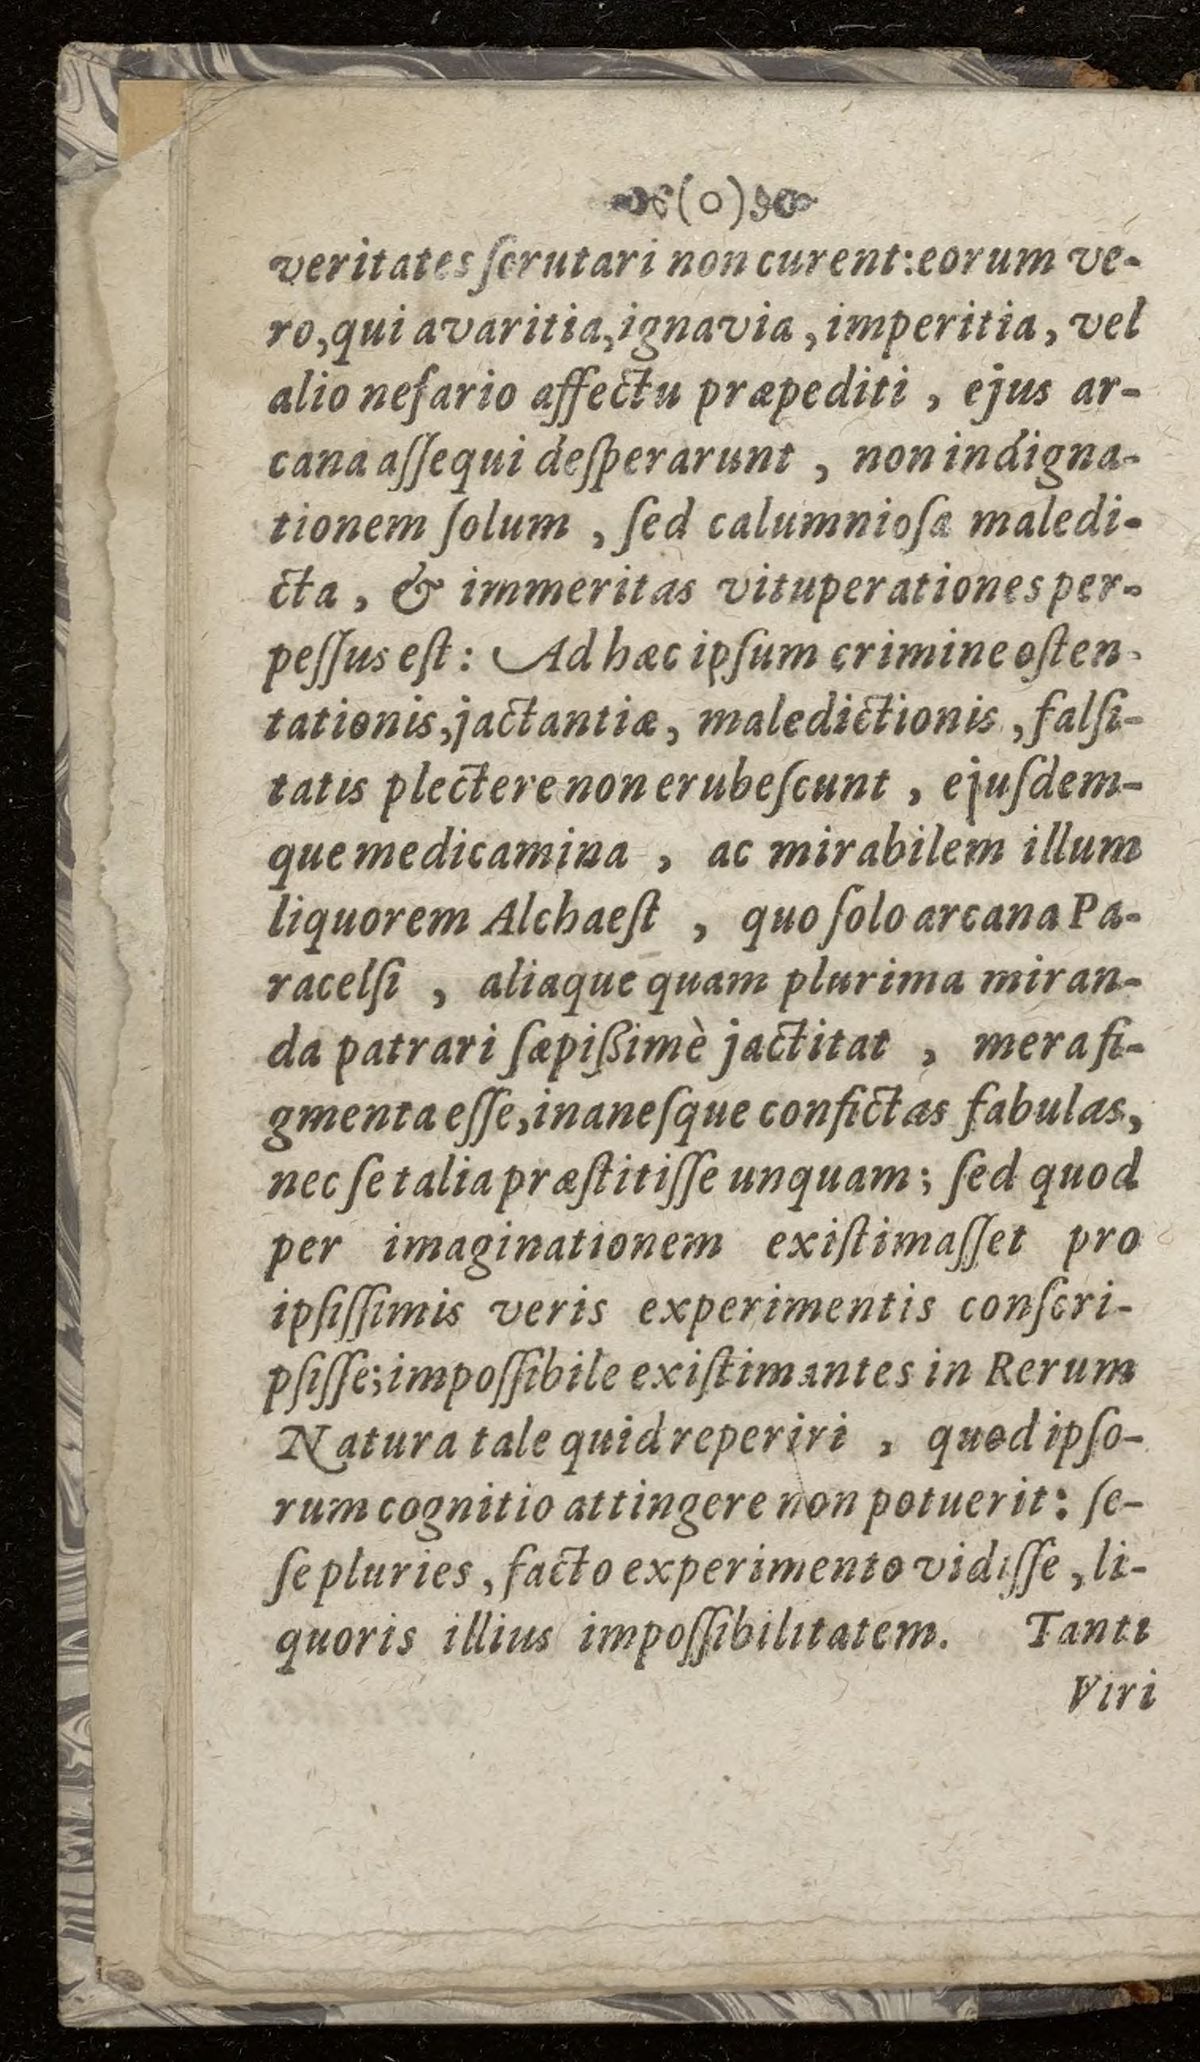 (o)
veritates ſcrutari non curent: eorum ve-
ro, qui avaritia, ignavia, imperitia, vel
alio nefario affectu præpediti, ejus ar-
cana aſſequi deſperarunt, non indigna-
tionem ſolum, ſed calumnioſa maledi-
cta, & immeritas vituperationes per-
peſſus eſt: Ad hæc ipſum crimine oſten-
tationis, jactantiæ, maledictionis, falſi-
tatis plectere non erubeſcunt, ejuſdem-
que medicamina, ac mirabilem illum
liquorem Alchaeſt, quo ſolo arcana Pa-
racelſi, aliaque quam plurima miran-
da patrari ſæpißimè jactitat, mera fi-
gmenta eſſe, inaneſque confictas fabulas,
nec ſe talia præſtitiſſe unquam; ſed quod
per imaginationem exiſtimaſſet pro
ipſiſſimis veris experimentis conſcri-
pſiſſe; impoſſibile exiſtimantes in Rerum
Natura tale quid reperiri, quod ipſo-
rum cognitio attingere non potuerit: ſe-
ſe pluries, facto experimento vidiſſe, li-
quoris illius impoſſibilitatem. Tanti
Viri